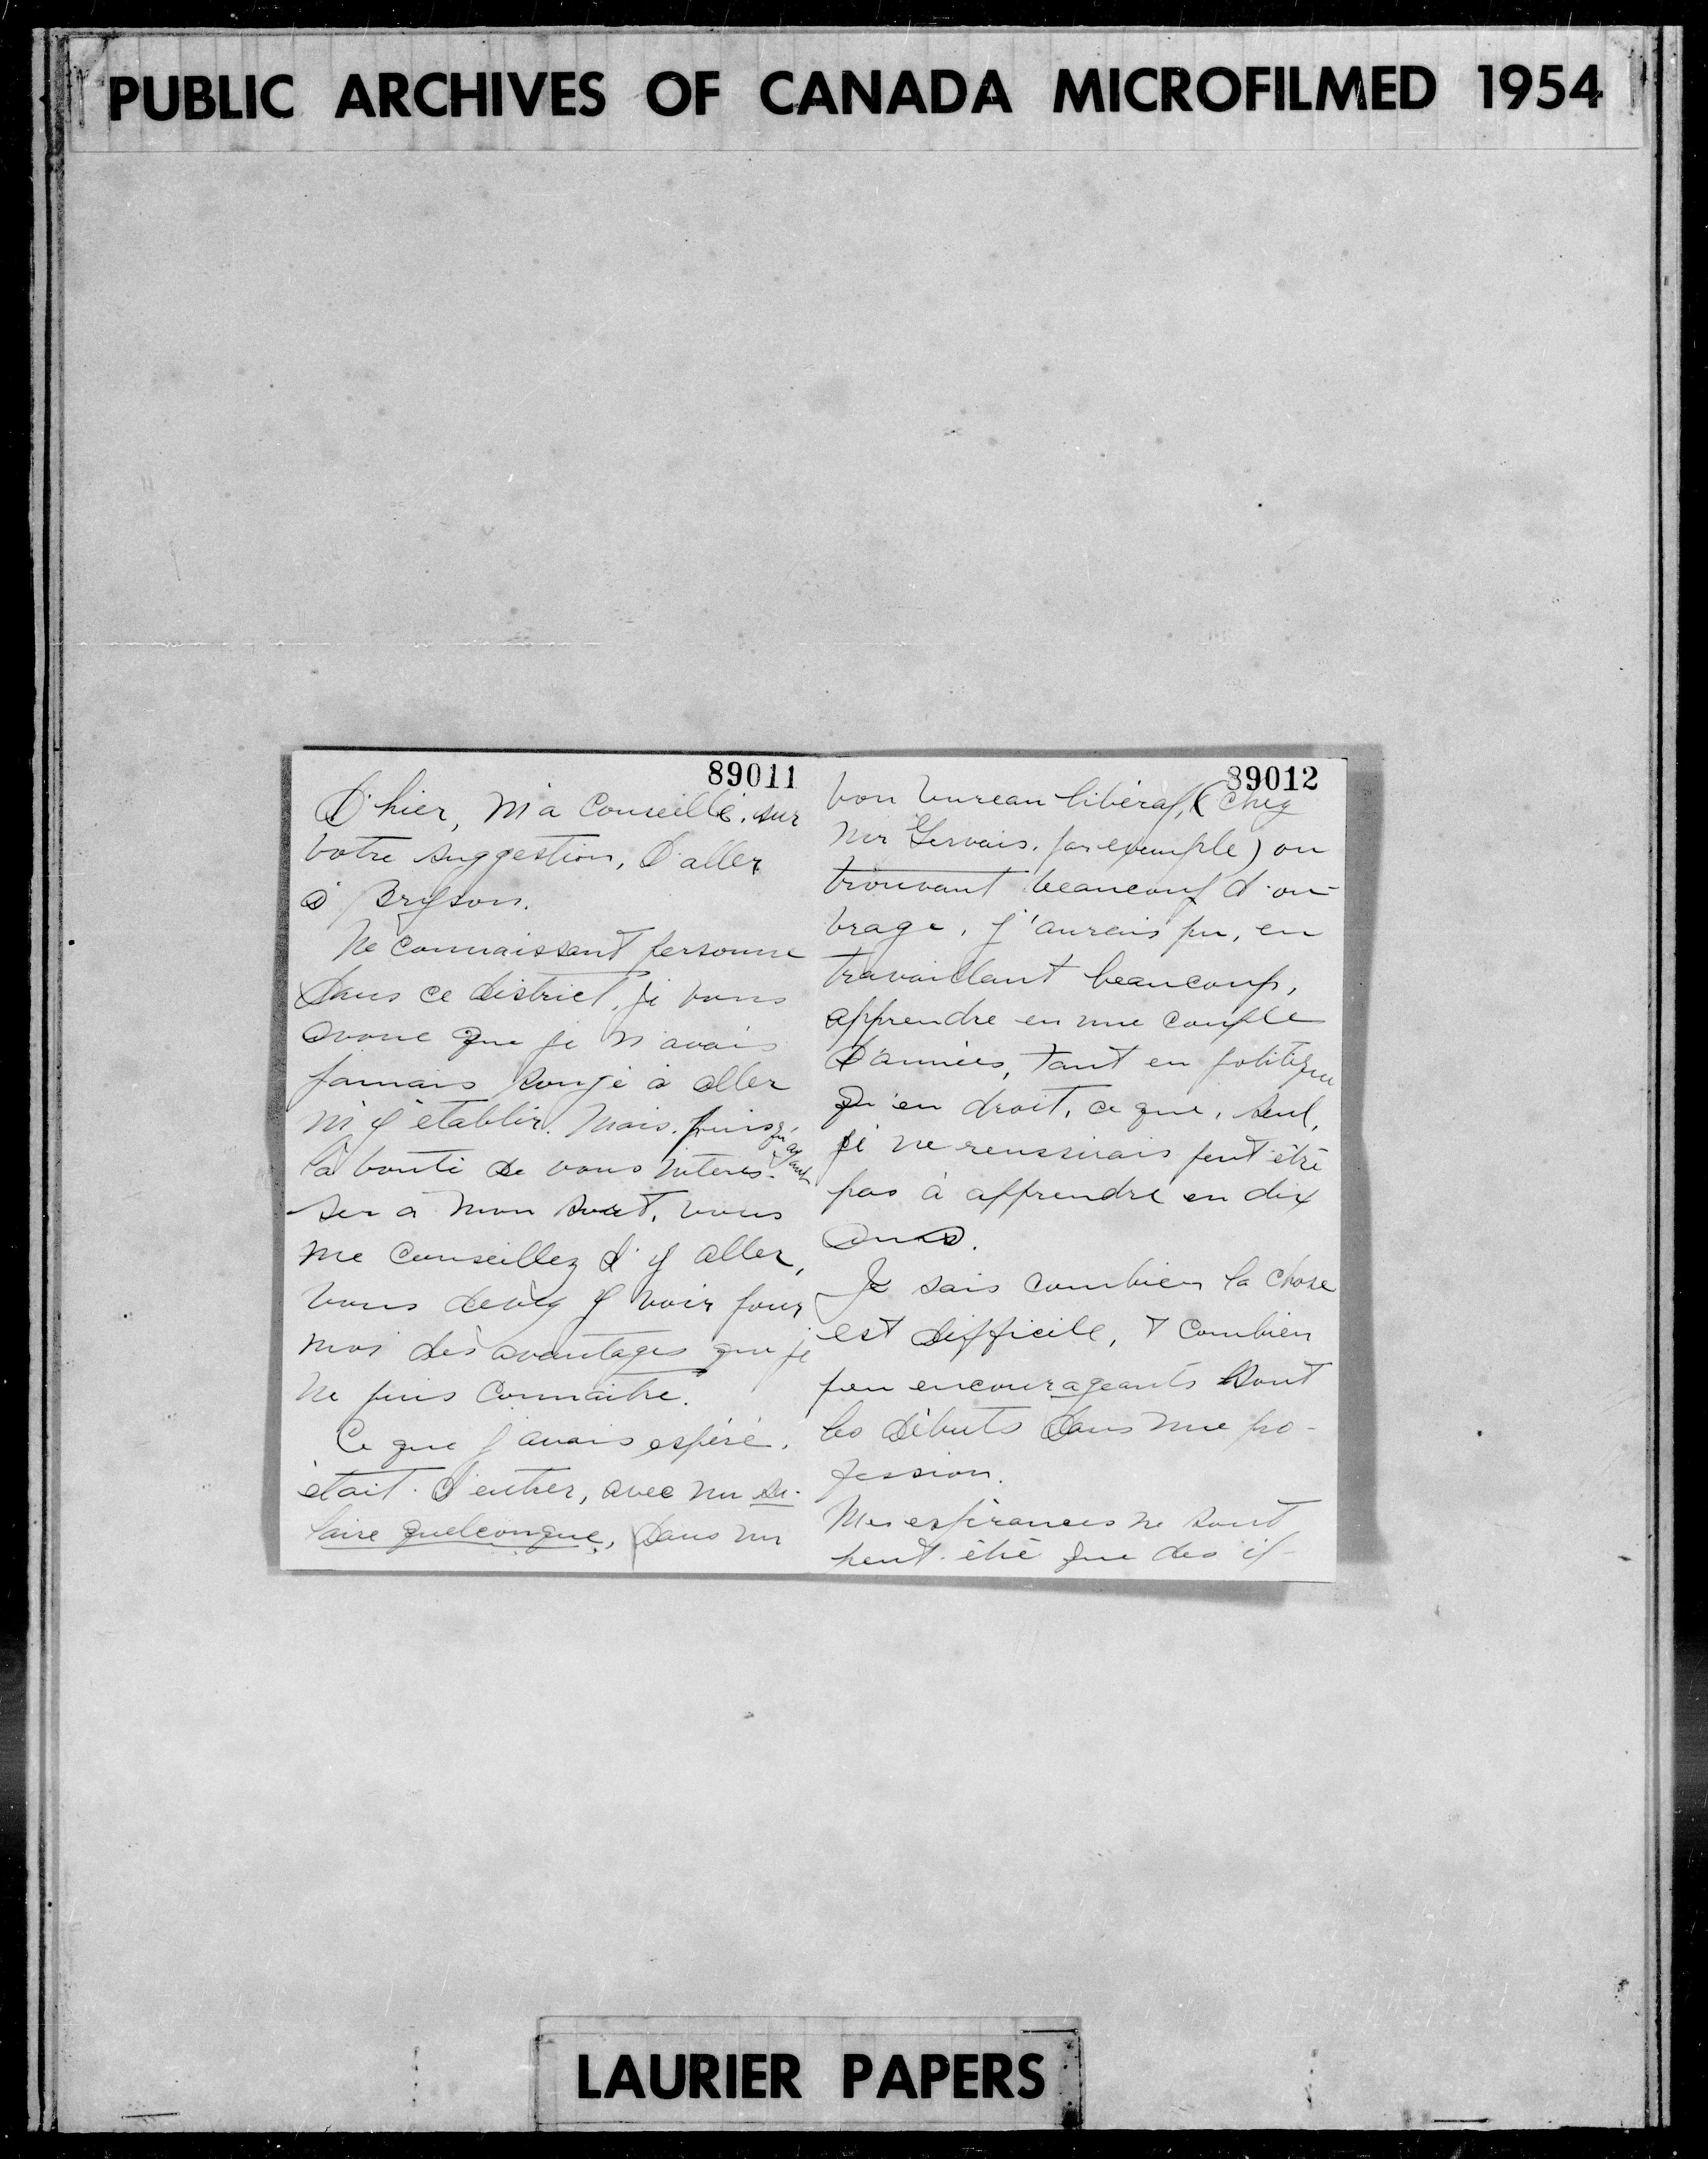 PUBLIC ARCHIVES OF CANADA MICROFILMED 1954
89011
D'hier, m'a conseillé, sur
votre suggestion, d'aller
à Bryson.
Ne connaissant personne
dans ce district, je vous
avoue que je n'avais
jamais songé à aller
m'y établir. Mais, puisqu'ayant
la bonté de vous intéres-
ser à mon sort, vous
me conseillez d'y aller,
vous devez y voir pour
moi des avantages que je
ne puis connaitre.
Ce que j'avais espéré,
était d'entrer, avec un sa-
laire quelconque, dans un
89012
bon bureau libéral, (chez
Mr Gervais, par exemple) ou
trouvant beaucoup d'ou-
vrage, j'aurais pu, en
travaillant beaucoup,
apprendre en une couple
d'années, tant en politique
qu'en droit, ce que, seul,
je ne reussirais peut être
pas à apprendre en dix
ans.
Je sais combien la chose
est difficile, & combien
peu encourageants sont
les débuts dans une pro-
fession.
Mes espérances ne sont
peut-être que des il-
LAURIER PAPERS